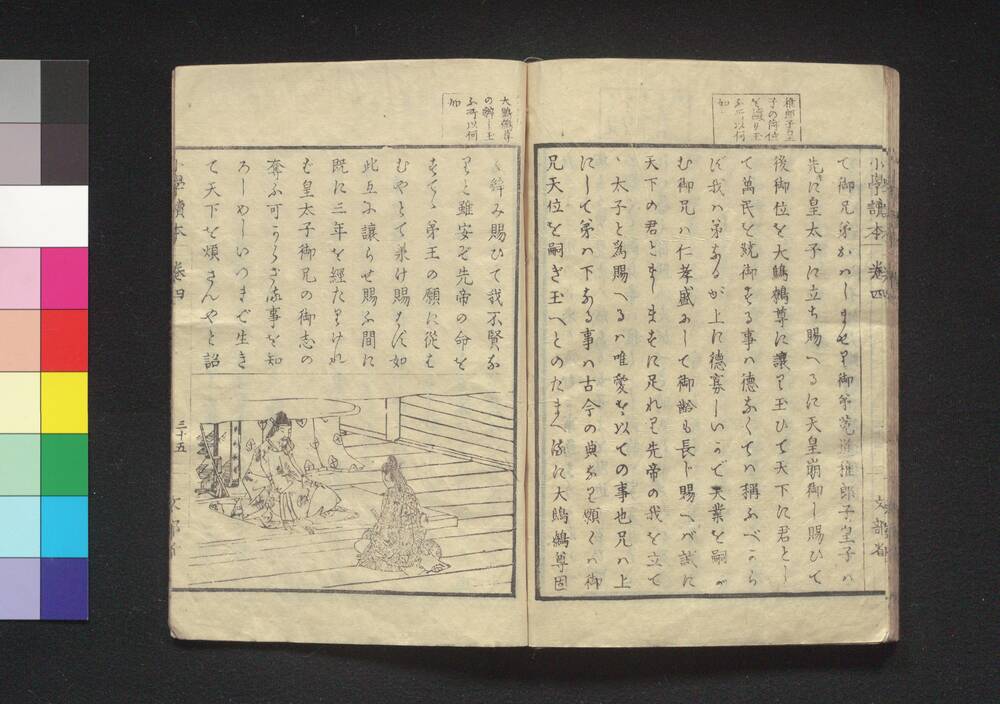 小學讀本 卷四
文部省
稚郎子皇
子の御位
を讓り玉
ふ所以何
如
て御兄弟おハしませり御弟菟道稚郎子皇子ハ
先に皇太子に立ち賜へるに天皇崩御し賜ひて
後御位を大鷦鷯尊に讓り玉ひて天下に君とし
て萬民を統御する事ハ德なくてハ稱ふべから
ず我ハ弟なるが上に德寡しいかで天業を嗣が
む御兄ハ仁孝盛にして御齡も長じ賜へバ誠に
天下の君とましますに足れり先帝の我を立て
ゝ太子と為賜へるハ唯愛を以ての事也兄ハ上
にして弟ハ下なる事ハ古今の典なり願くハ御
兄天位を嗣ぎ玉へとのたまへるに大鷦鷯尊固
大鷦鷯尊
の辭し玉
ふ所以何
如
く辭み賜ひて我不賢な
りと雖安ぞ先帝の命を
すてゝ弟王の願に從は
むやとて承け賜はず如
此互に讓らせ賜ふ間に
既に三年を經たりけれ
ば皇太子御兄の御志の
奪ふ可からざる事を知
ろしめしいつまで生き
て天下を煩さんやと詔
小學讀本 卷四
三十五
文部省